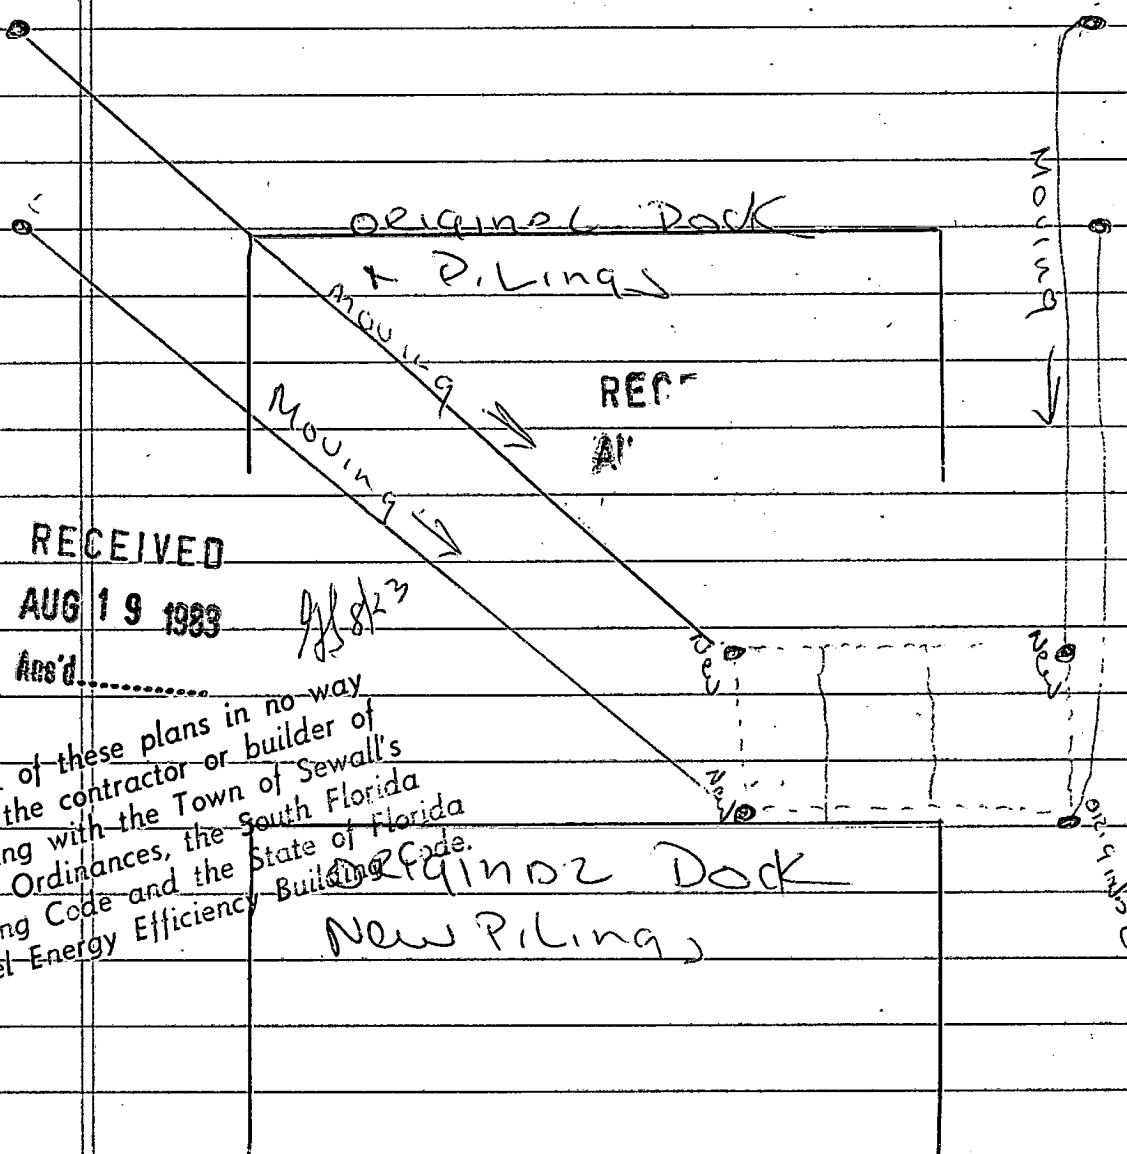 Original Dock
& Pilings
Moving
Moving
Moving
REC
RECEIVED
AUG 19 1983
8/23
Ans'd
New
New
New
original
of these plans in no way
the contractor or builder of
ng with the Town of Sewall's
Ordinances, the South Florida
ng Code and the State of Florida
el Energy Efficiency Building Code.
Original Dock
New Pilings